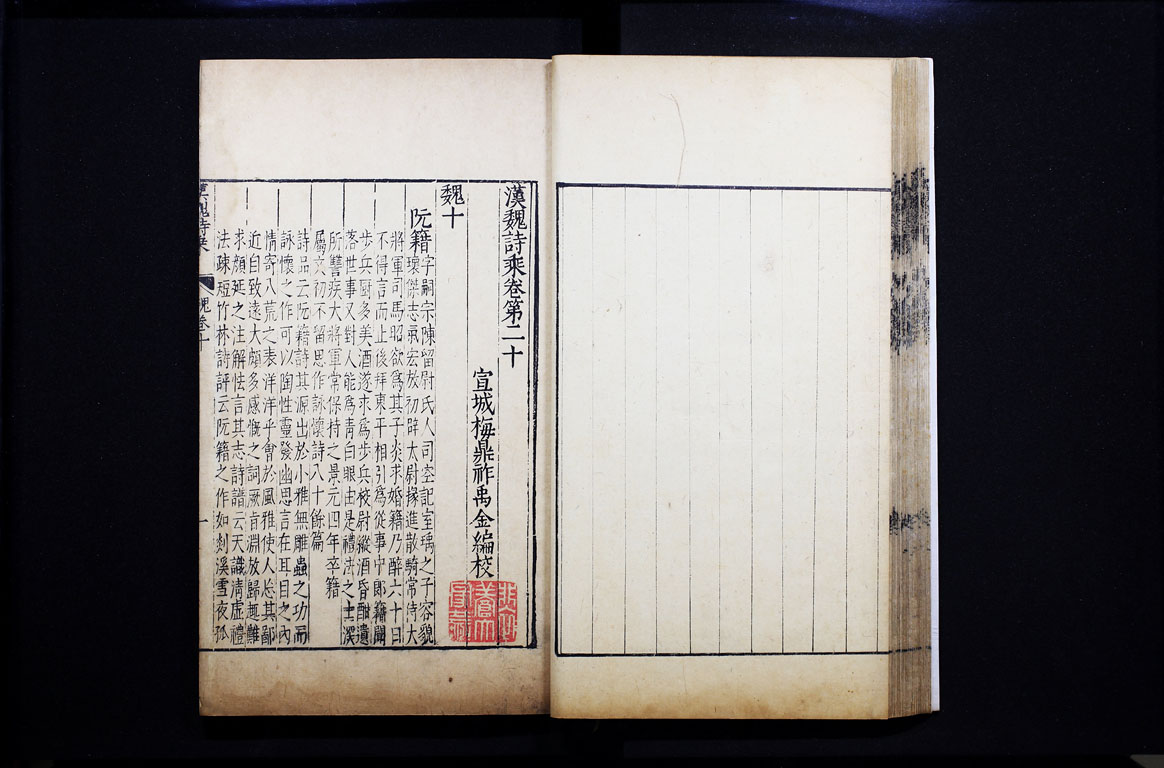 漢魏詩乘卷第二十
宣城梅鼎祚禹金編校
魏十
阮籍
字嗣宗陳留尉氏人司空記室瑀之子容貌
瓌傑志氣宏放初辟太尉掾進散騎常侍大
將軍司馬昭欲爲其子炎求婚籍乃醉六十日
不得言而止後拜東平相引爲從事中郎籍聞
步兵厨多美酒遂求爲步兵校尉縱酒昏酣遺
落世事又對人能爲青白眼由是禮法之士深
所讐疾大將軍常保持之景元四年卒籍
屬文初不留思作詠懷詩八十餘篇
詩品云阮籍詩其源出於小雅無雕蟲之功而
詠懷之作可以陶性靈發幽思言在耳目之內
情寄八荒之表洋洋乎會於風雅使人忘其鄙
近自致遠大頗多感慨之詞厥旨淵放歸趣難
求顏延之注解怯言其志詩譜云天識清虛禮
法疎短竹林詩評云阮籍之作如剡溪雪夜孤
漢魏詩乘
魏卷十
一